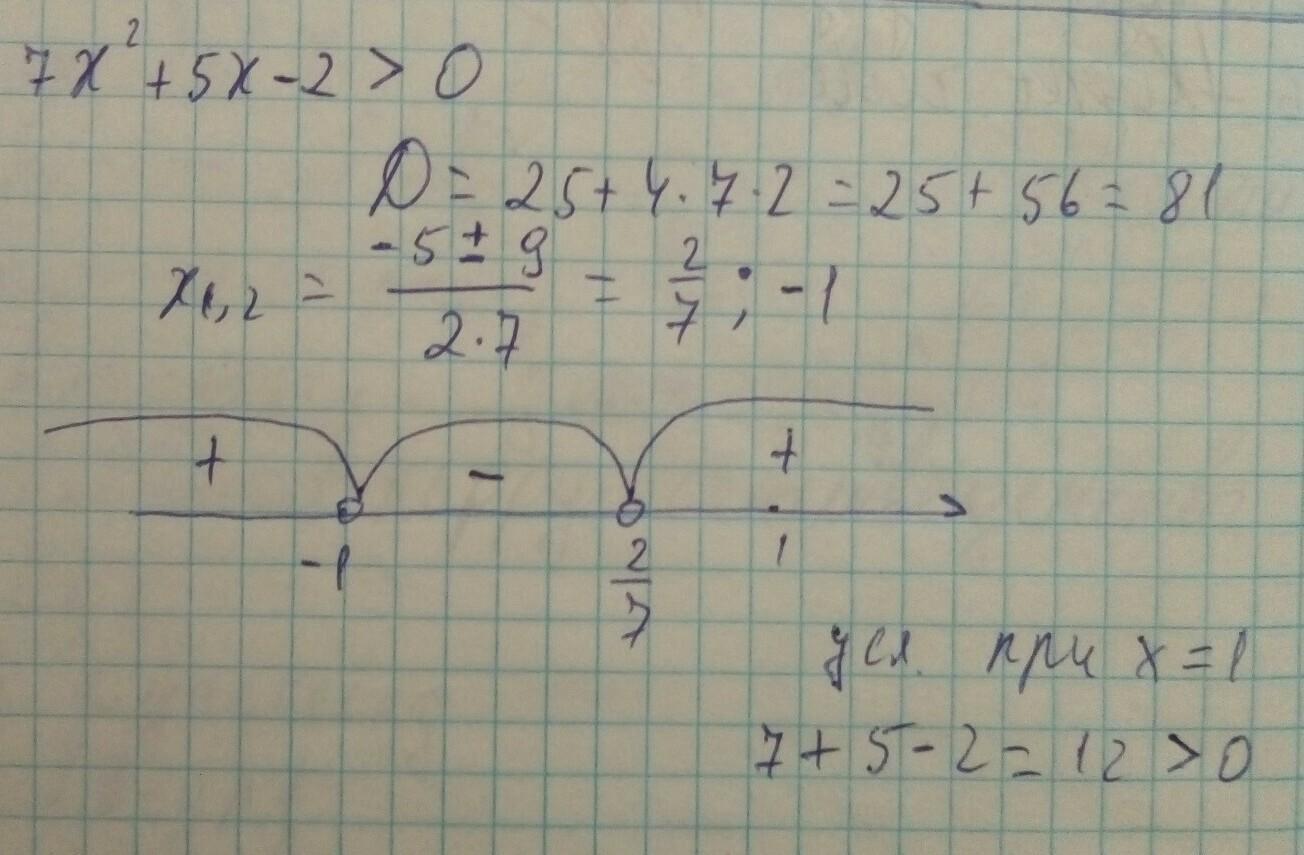 7x² + 5x - 2 > 0
D = 25 + 4 · 7 · 2 = 25 + 56 = 81
x₁,₂ = (-5 ± 9) / (2 · 7) = 2/7 ; -1
+ - +
-1 2/7 1
усл. при x = 1
7 + 5 - 2 = 12 > 0